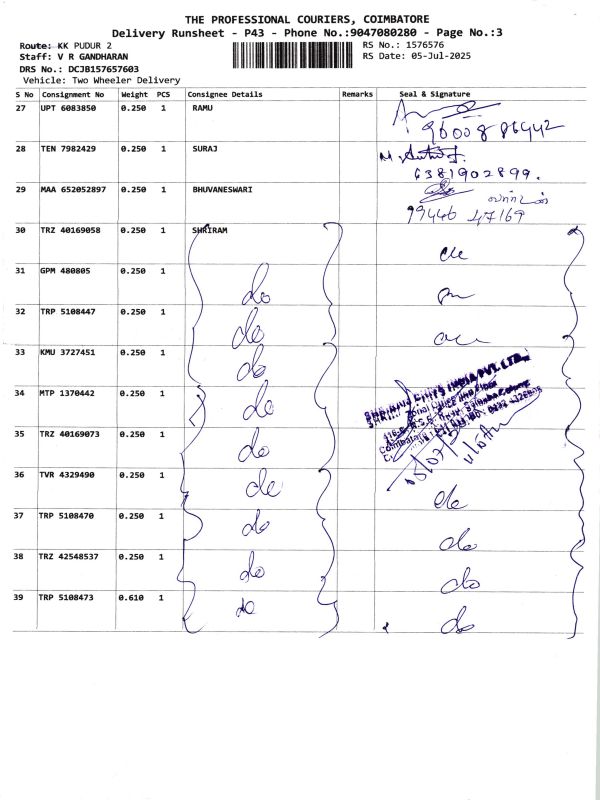 THE PROFESSIONAL COURIERS, COIMBATORE
Delivery Runsheet - P43 - Phone No.:9047080280 - Page No.:3
Route: KK PUDUR 2
RS No.: 1576576
Staff: V R GANDHARAN
RS Date: 05-Jul-2025
DRS No.: DCJB157657603
Vehicle: Two Wheeler Delivery
S No Consignment No Weight PCS Consignee Details Remarks Seal & Signature
27 UPT 6083850 0.250 1 RAMU
96008 86442
28 TEN 7982429 0.250 1 SURAJ
6381902899.
29 MAA 652052897 0.250 1 BHUVANESWARI
99446 47169
30 TRZ 40169058 0.250 1 SHRIRAM
31 GPM 480805 0.250 1 do
32 TRP 5108447 0.250 1 do
33 KMU 3727451 0.250 1 do
34 MTP 1370442 0.250 1 do
35 TRZ 40169073 0.250 1 do
36 TVR 4329490 0.250 1 do do
37 TRP 5108470 0.250 1 do do
38 TRZ 42548537 0.250 1 do do
39 TRP 5108473 0.610 1 do do